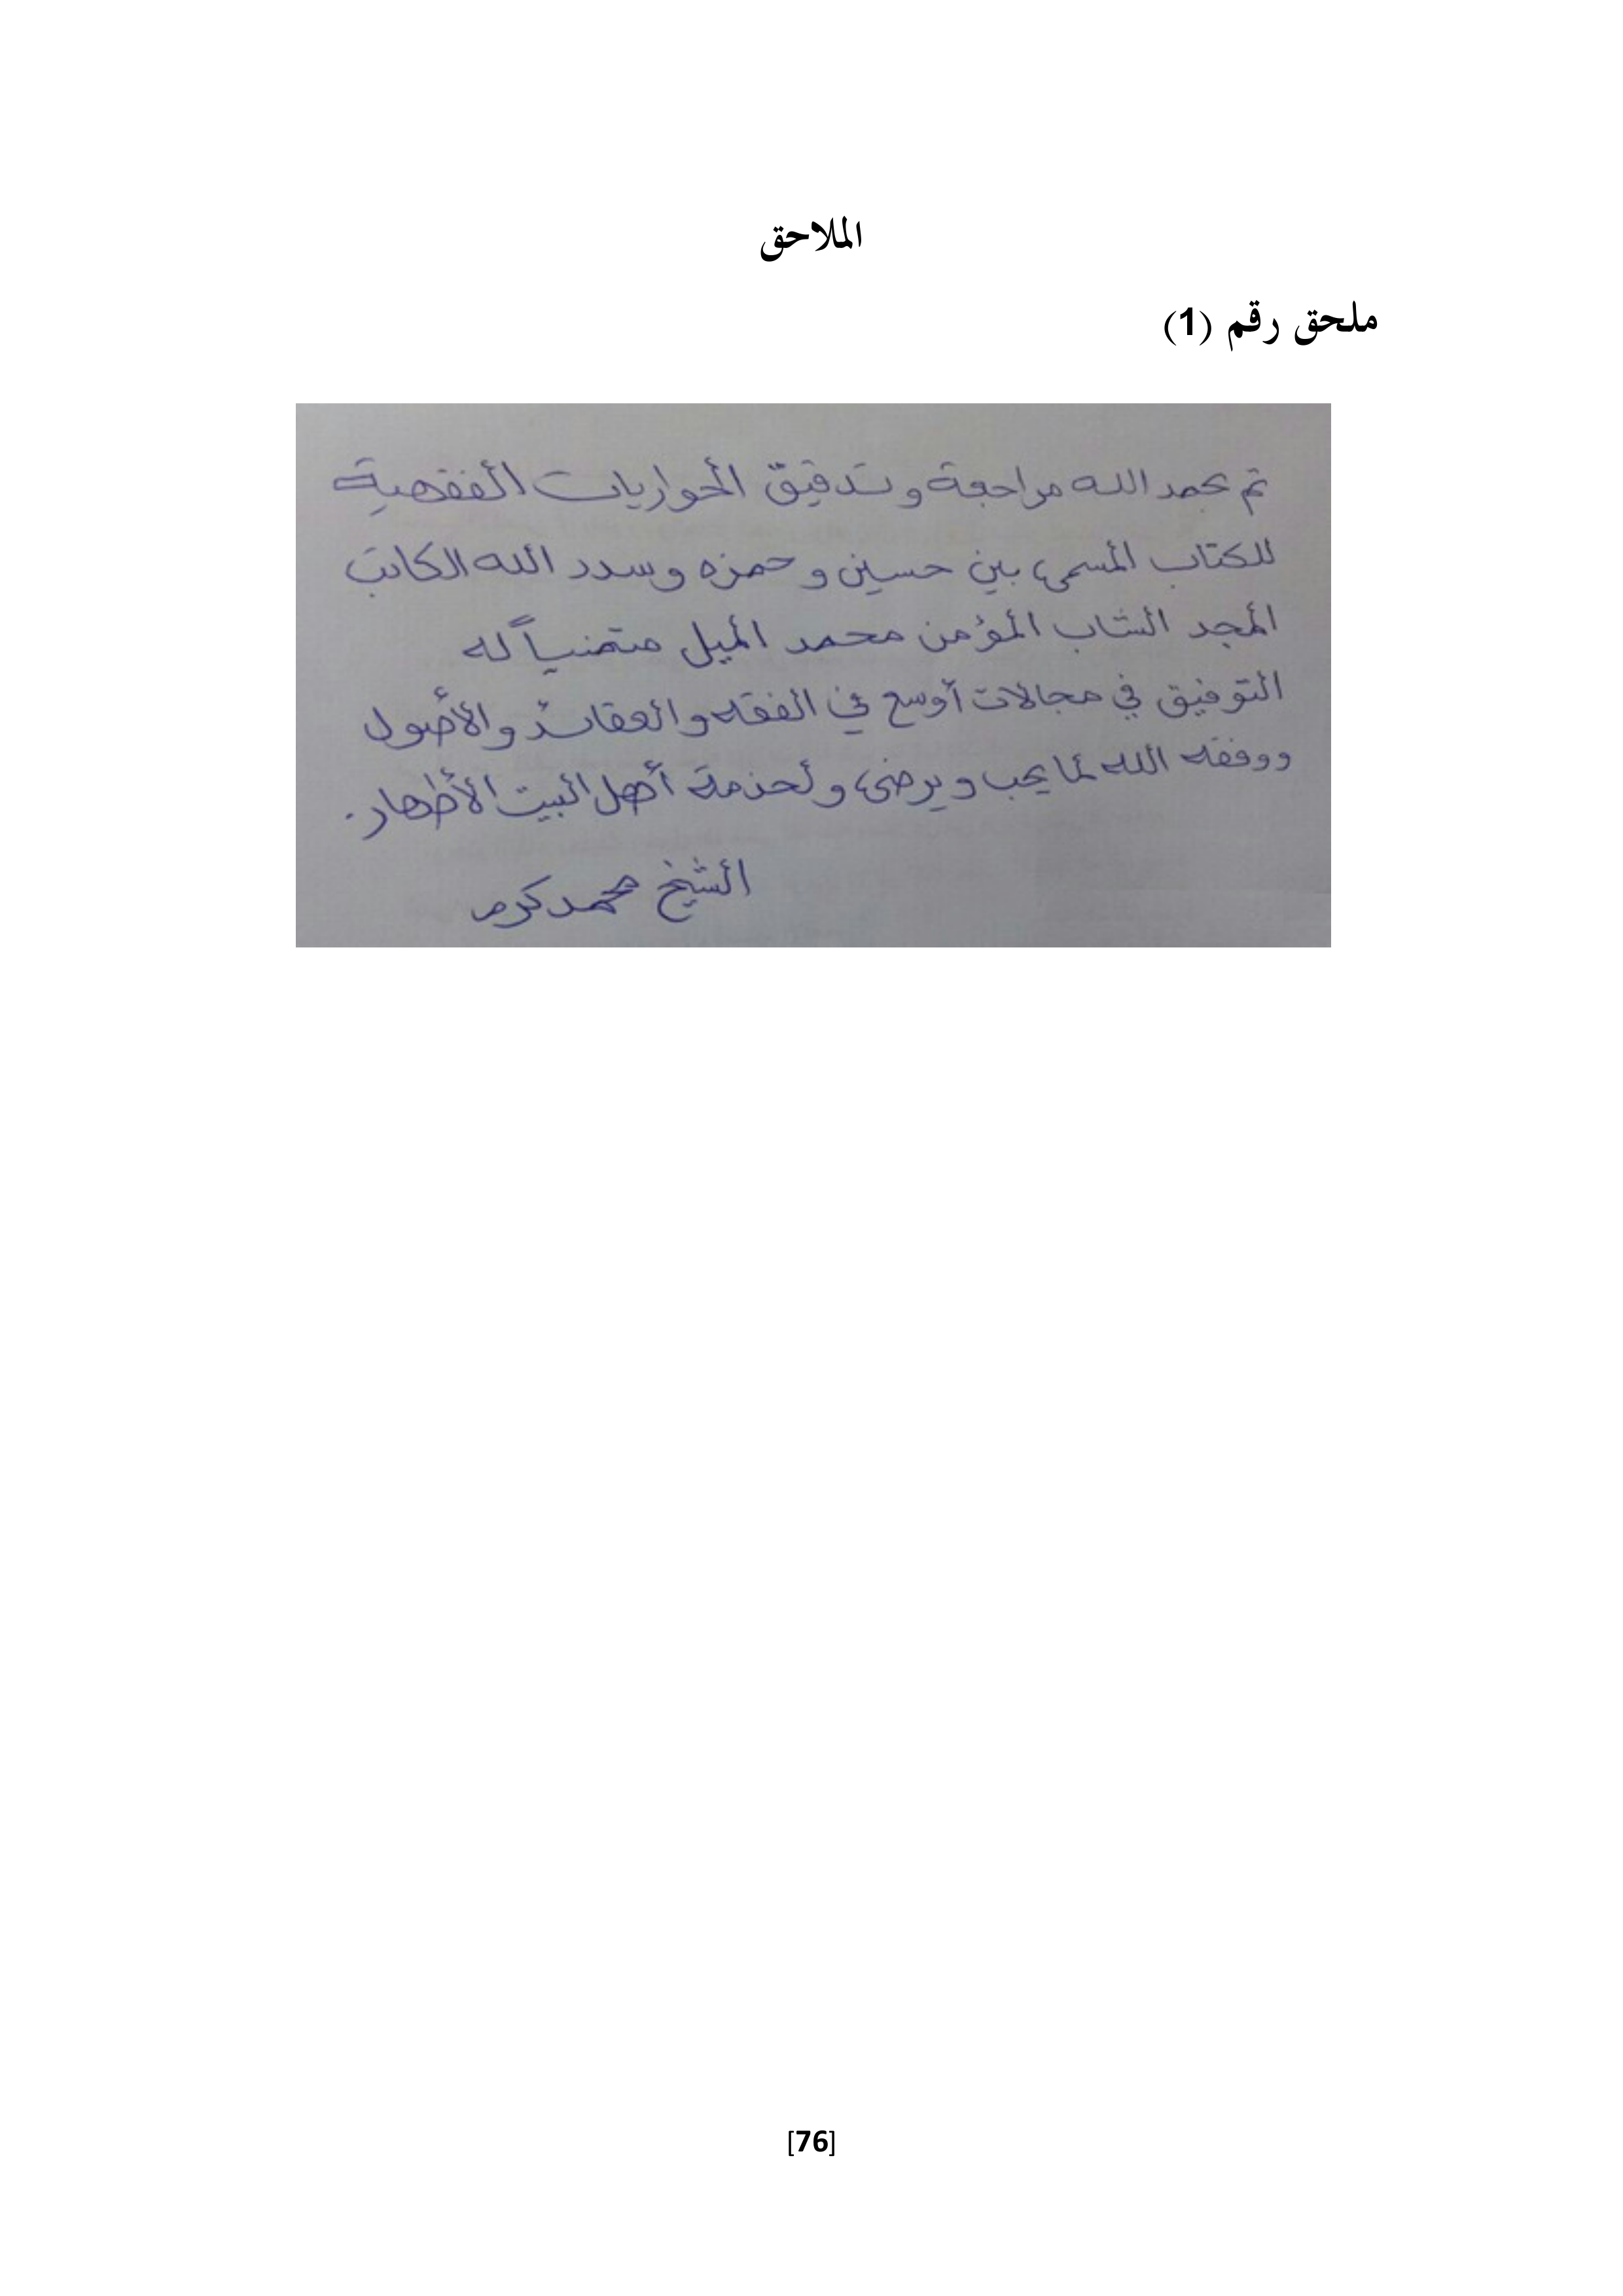 الملاحق
ملحق رقم (1)
تم بحمد الله مراجعة وتدقيق الحواريات الفقهية
للكتاب المسمى بين حسين و حمزه وسدد الله الكاتب
المجد الشاب المؤمن محمد الميل متمنياً له
التوفيق في مجالات أوسع في الفقه والعقائد والأصول
ووفقه الله لما يحب ويرضى ولخدمة أهل البيت الأطهار.
الشيخ محمد كرم
[76]